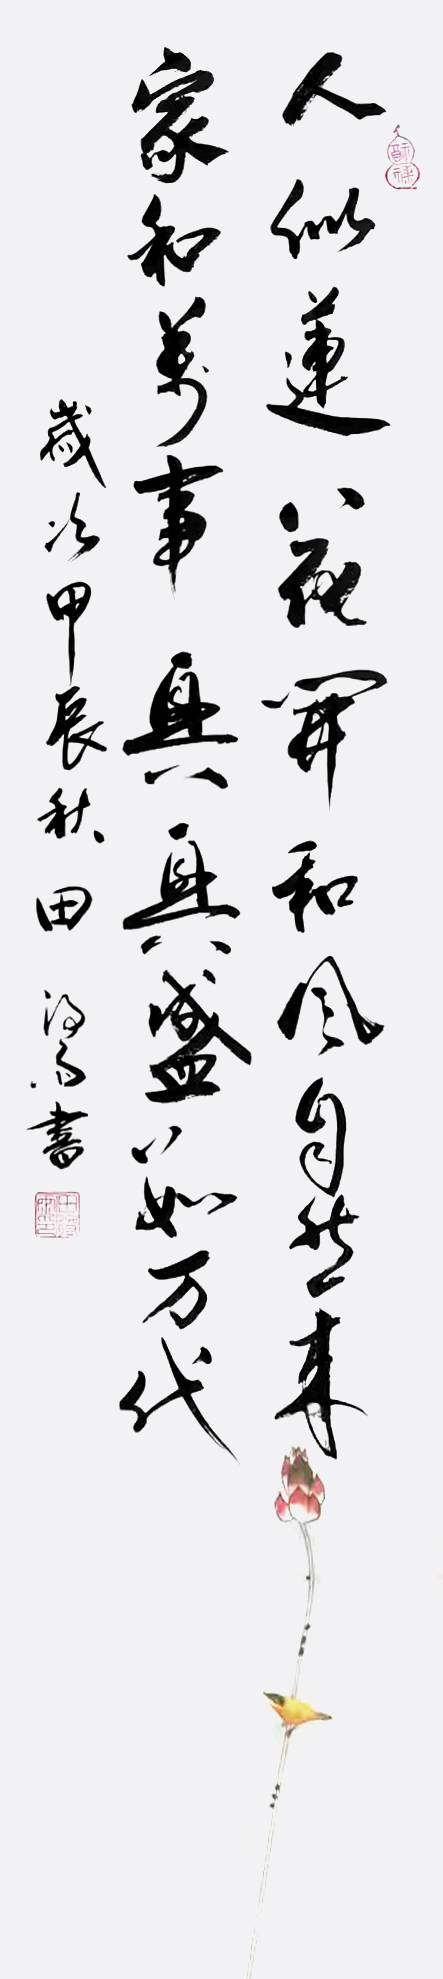 人似蓮花開和風自然来
家和萬事興興盛茹万代
歲次甲辰秋田書